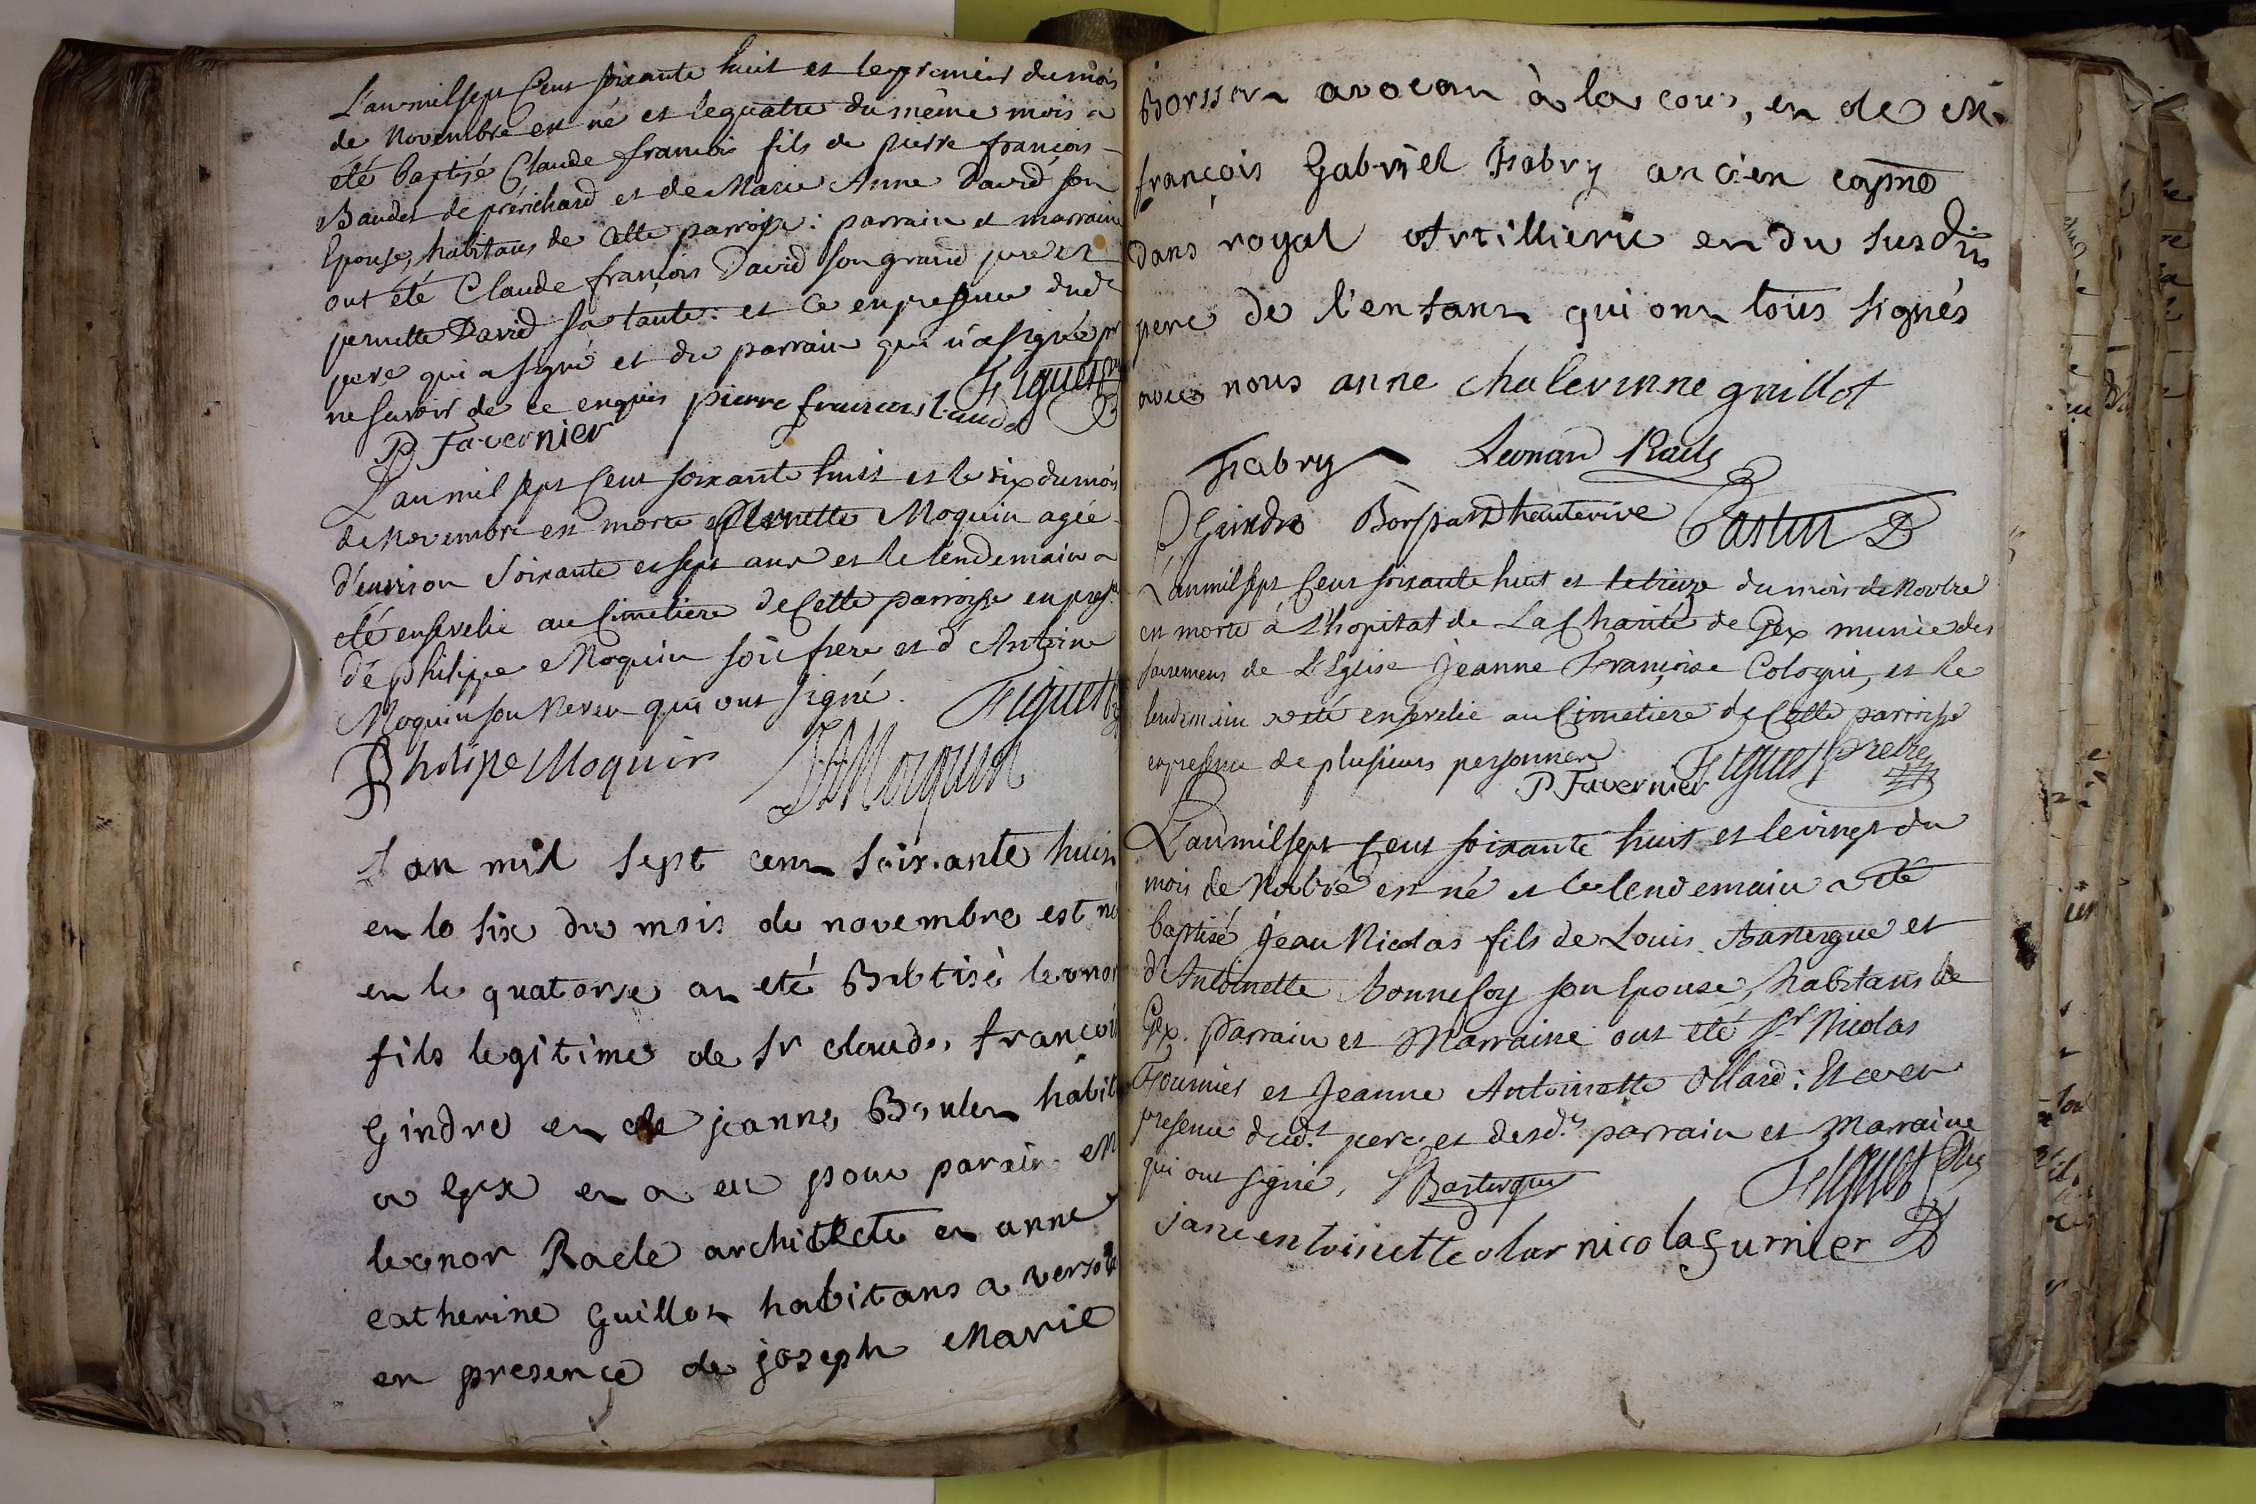 L'an mil sept Cent soixante huit et le premier du mois
de Novembre est né et le quatre du même mois a
été baptisé Claude françois fils de pierre françois
Baudet de prénichard et de Marie Anne David son
Epouse, habitans de cette parroisse: parrain et marraine
ont été Claude françois David son grand pere et
pernette David sa tante. et ce en presence dud.
pere qui a signé et du parrain qui n'a signé pr
ne savoir de ce enquis pierre francois baudet Figuet
P Favernier
L'an mil sept Cent soixante huit et le six du mois
de Novembre est morte Pernette Moquin agée
d'environ soixante et sept ans et le lendemain a
été ensevelie au Cimetiere de Cette parroisse en pres.
de philippe Moquin son frere et d'Antoine
Moquin son Neveu qui ont signé. Figuet
Philipe Moquin Moquin
L'an mil sept cent soixante huit
et le six du mois de novembre est né
et le quatorse at eté Babtisé leonor
fils legitime de Sr claude françois
Gindre et de jeanne habit
a Gex et a eu pour parain M
leonor Racle architecte et anne
catherine Guillot habitans a versoix
en presence de joseph Marie
Borssat avocat à la cour, et de M.
françois Gabriel Fabry ancien capne
dans royal Artillierie et du susdit
pere de l'enfant qui ont tous signés
avec nous anne chaterinne guillot
Fabry Leonard Racle
Gindre Borssat Dhauterive Castin
L'an mil sept Cent soixante huit et le treize du mois de Novbre
est morte à L'hopital de La Charité de Gex munie des
sacremens de L'Eglise Jeanne Françoise Cologni, et le
lendemain a été ensevelie au Cimetiere de Cette parroisse
en presence de plusieurs personnes. Figuet Pretre
P Favernier
L'an mil sept Cent soixante huit et le vingt du
mois de Novbre est né et le lendemain a été
baptisé Jean Nicolas fils de Louis Bastergue et
d'Antoinette Bonnefoy son Epouse, habitans de
Gex. Parrain et Marraine ont été Sr. Nicolas
Fournier et Jeanne Antoinette Ollard: Et ce en
presence dud.t pere et desd.ts parrain et Marraine
qui ont signé, L Bastergue Figuet Ptre
jane entoinette olar nicolas furnier